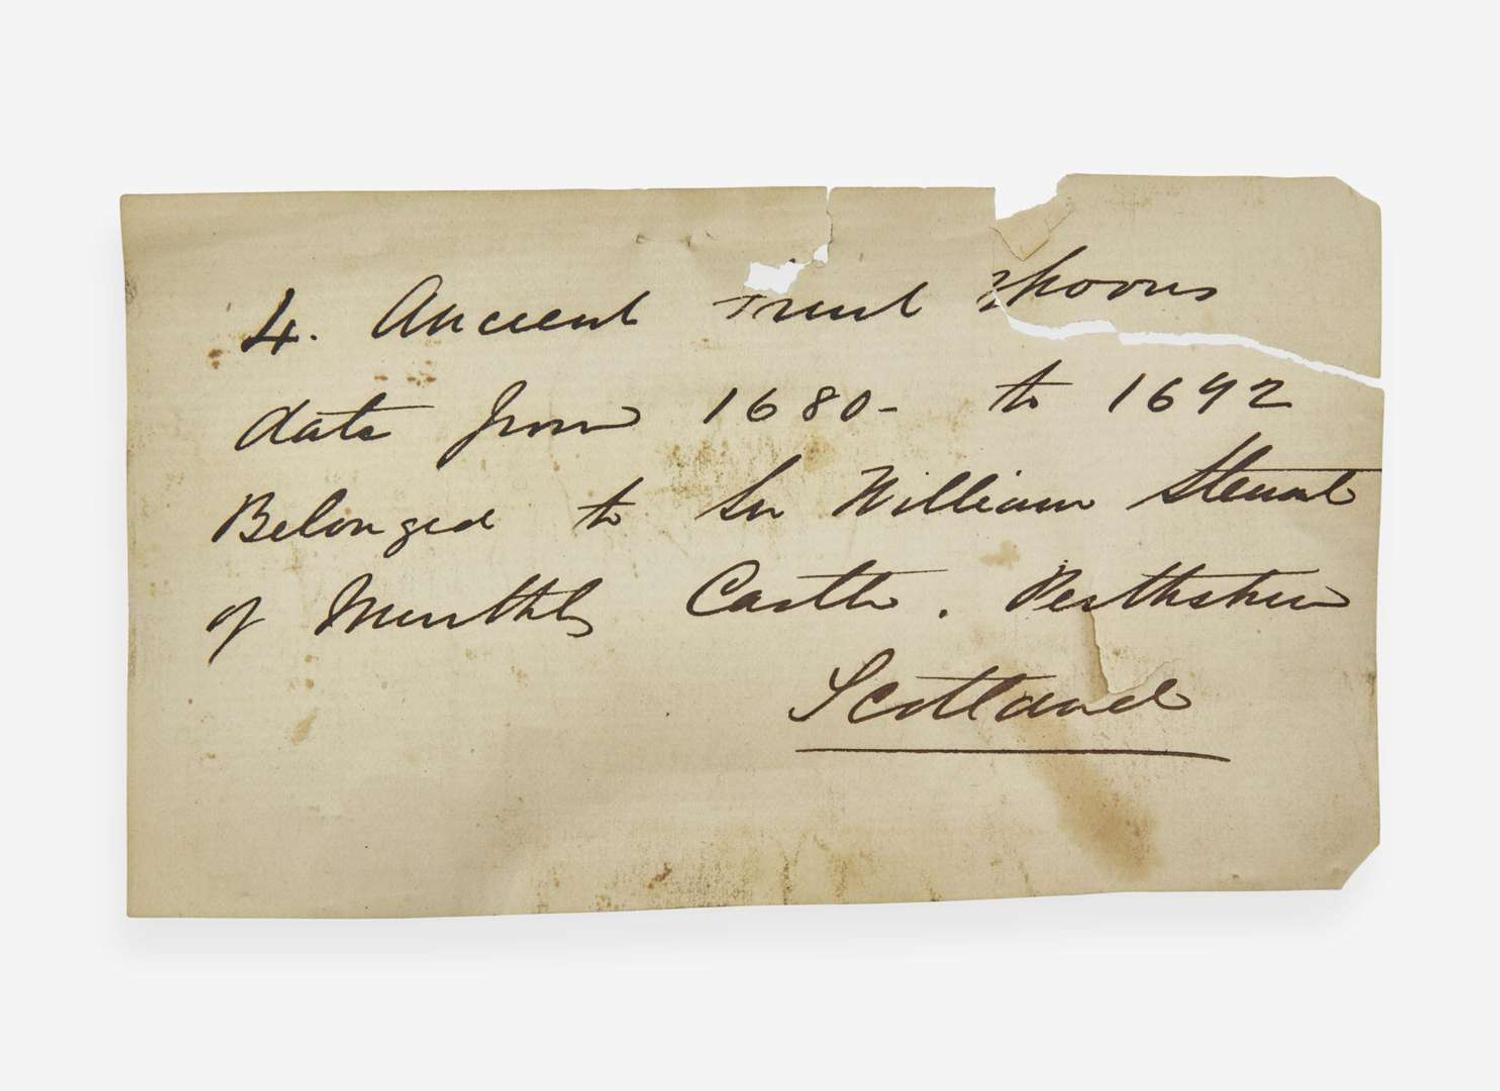 4. Ancient Trist Spoons
date from 1680- to 1692
Belonged to Sir William Steuart
of Murthly Castle. Perthshire
Scotland